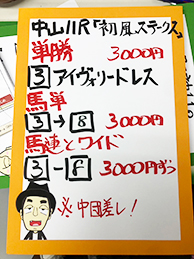 中山11R「初風ステークス」
単勝 3000円
3 アイヴォリードレス
馬単
3→8 3000円
馬連とワイド
3-F 3000円ずつ
※中団差し!